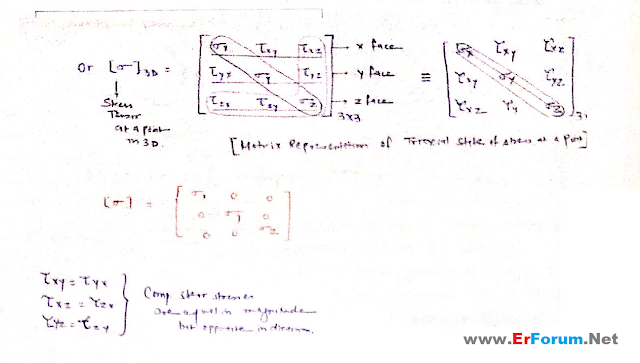 or [σ]3D = [ σx τxy τxz ] → x face ≡ [ σx τxy τxz ]
[ τyx σy τyz ] → y face [ τxy σy τyz ]
[ τzx τzy σz ]3x3 → z face [ τxz τy σz ]3
Stress
Tensor
at a point
in 3D.
[Matrix Representation of Triaxial State of stress at a point]
[σ] = [ σ1 0 0 ]
[ 0 σy 0 ]
[ 0 0 σz ]
τxy = τyx
τxz = τzx
τyz = τzy
Comp shear stresses
are equal in magnitude
but opposite in direction.
www.ErForum.Net